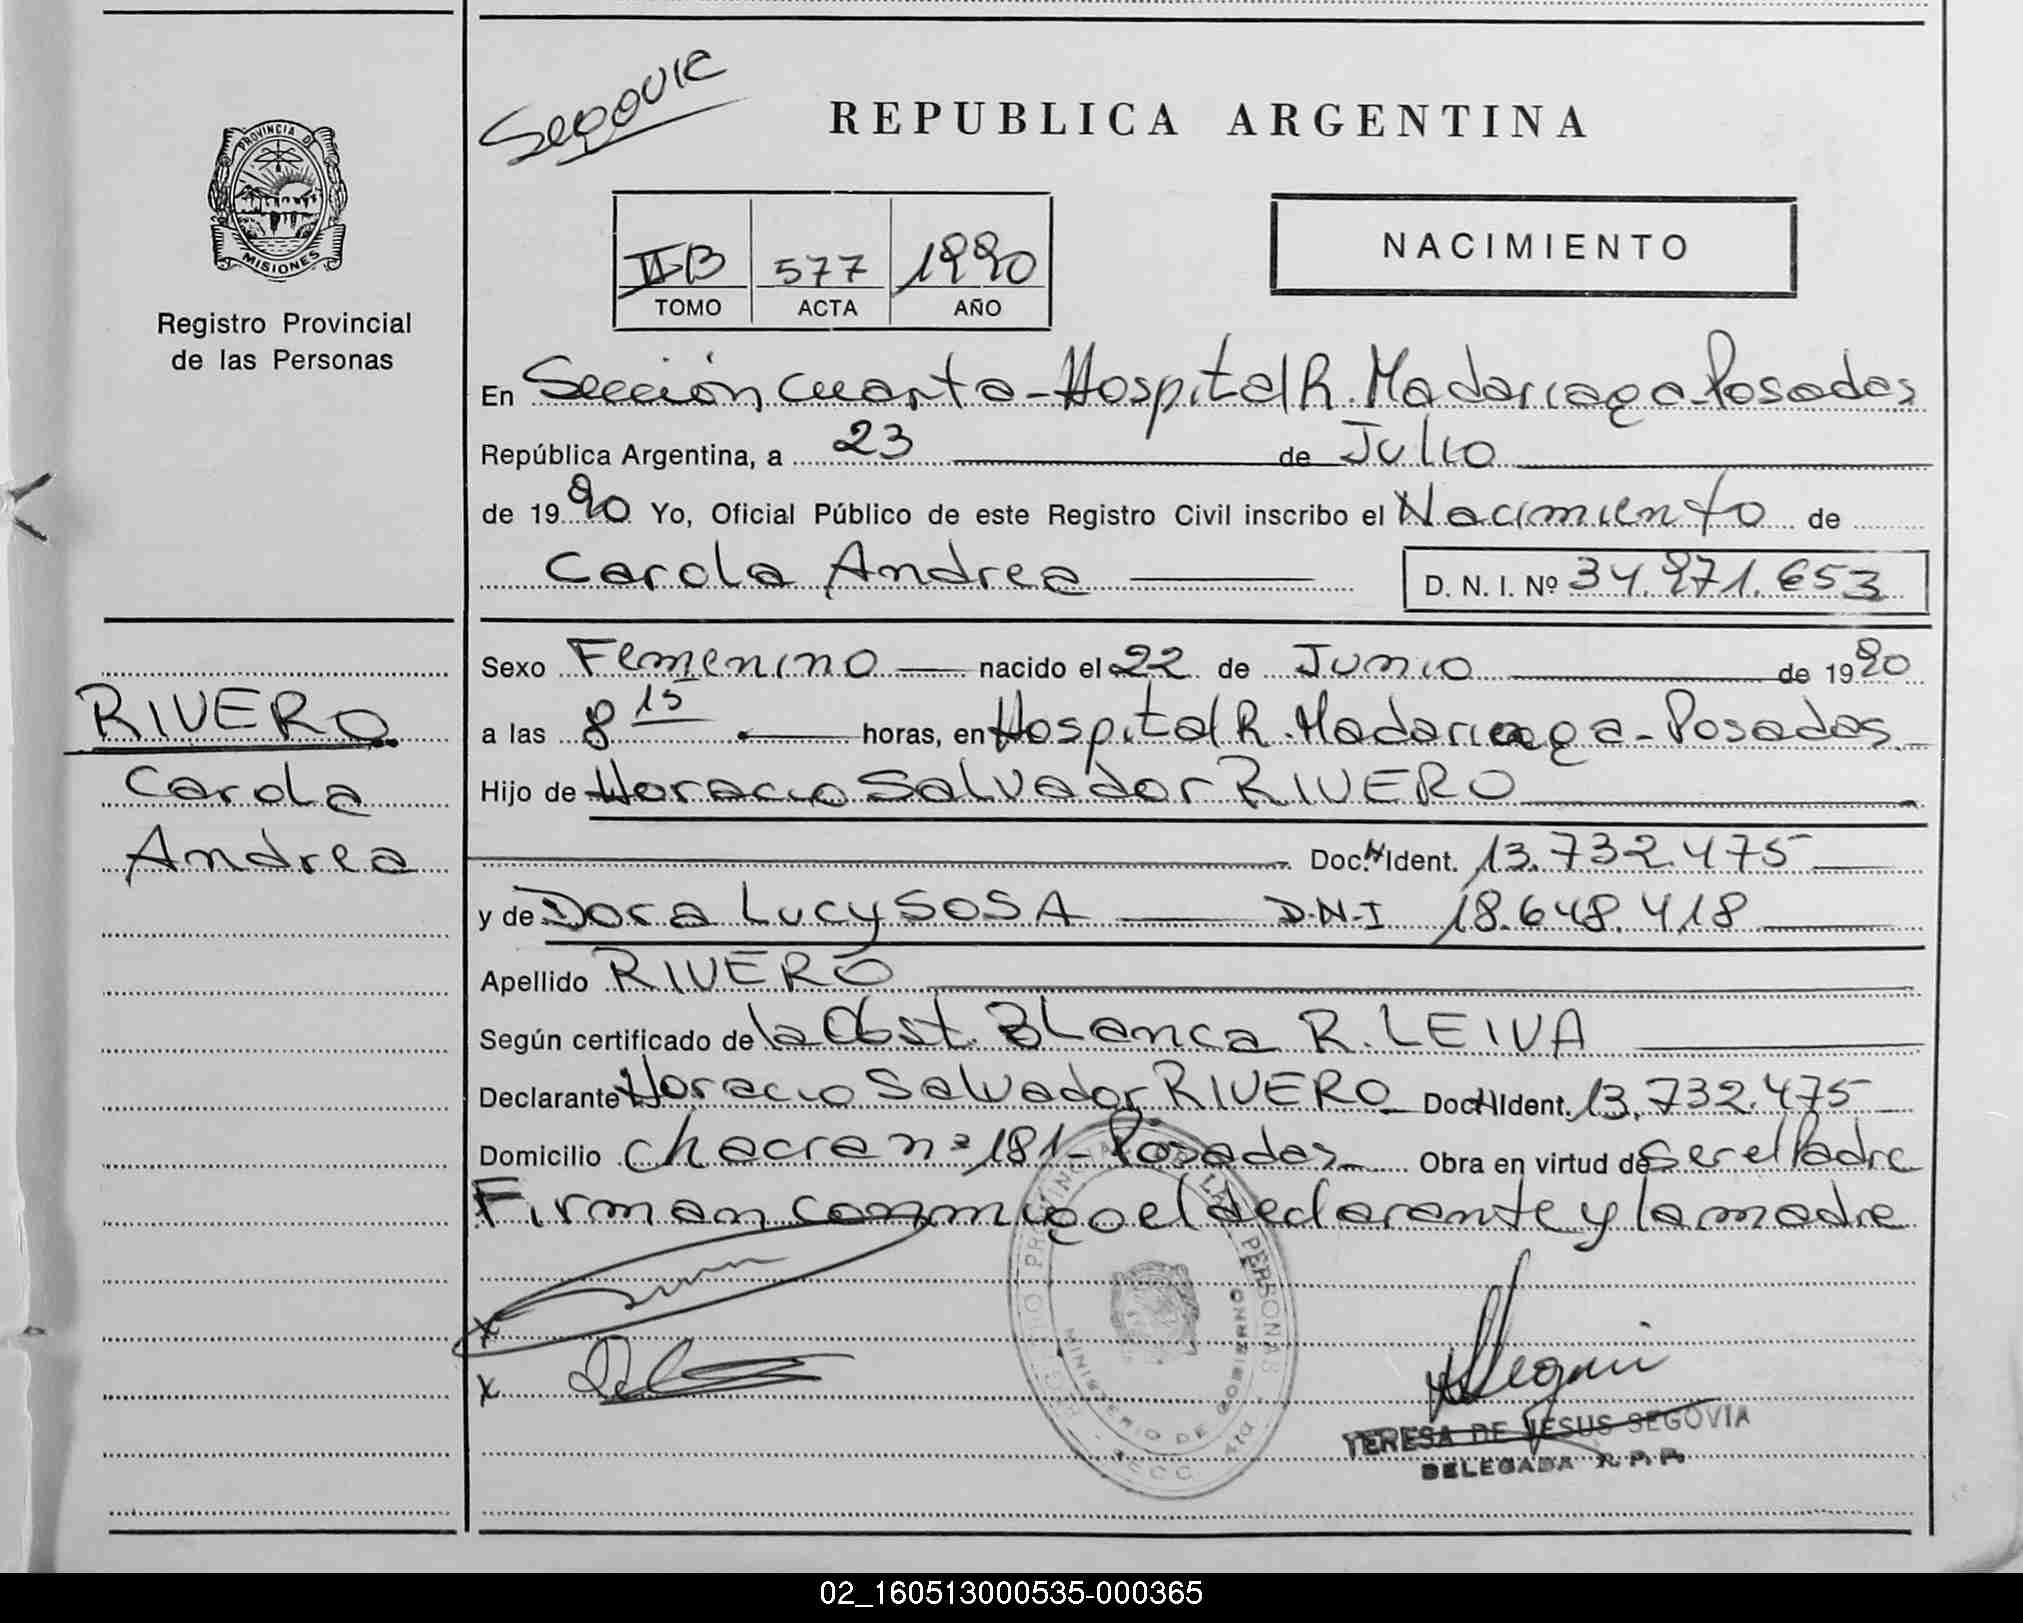 Segovia
REPUBLICA ARGENTINA
PROVINCIA DE
MISIONES
Registro Provincial
de las Personas
II B 577 1990
TOMO ACTA AÑO
NACIMIENTO
En Sección Cuarta - Hospital R. Madariaga - Posadas
República Argentina, a 23 de Julio
de 1990 Yo, Oficial Público de este Registro Civil inscribo el Nacimiento de
Carola Andrea D. N. I. Nº 34.971.653
Sexo Femenino nacido el 22 de Junio de 1990
RIVERO
Carola
Andrea
a las 8 15 horas, en Hospital R. Madariaga - Posadas
Hijo de Horacio Salvador RIVERO
Doc. N Ident. 13.732.475
y de Dora Lucy SOSA D.N.I 18.648.418
Apellido RIVERO
Según certificado de la Obst. Blanca R. LEIVA
Declarante Horacio Salvador RIVERO Doc. N Ident. 13.732.475
Domicilio Chacra nº 181 - Posadas Obra en virtud de ser el Padre
Firman conmigo el declarante y la madre
REGISTRO PROVINCIAL DE LAS PERSONAS
MINISTERIO DE GOBIERNO
TERESA DE JESUS SEGOVIA
DELEGADA R. P. P.
02_160513000535-000365